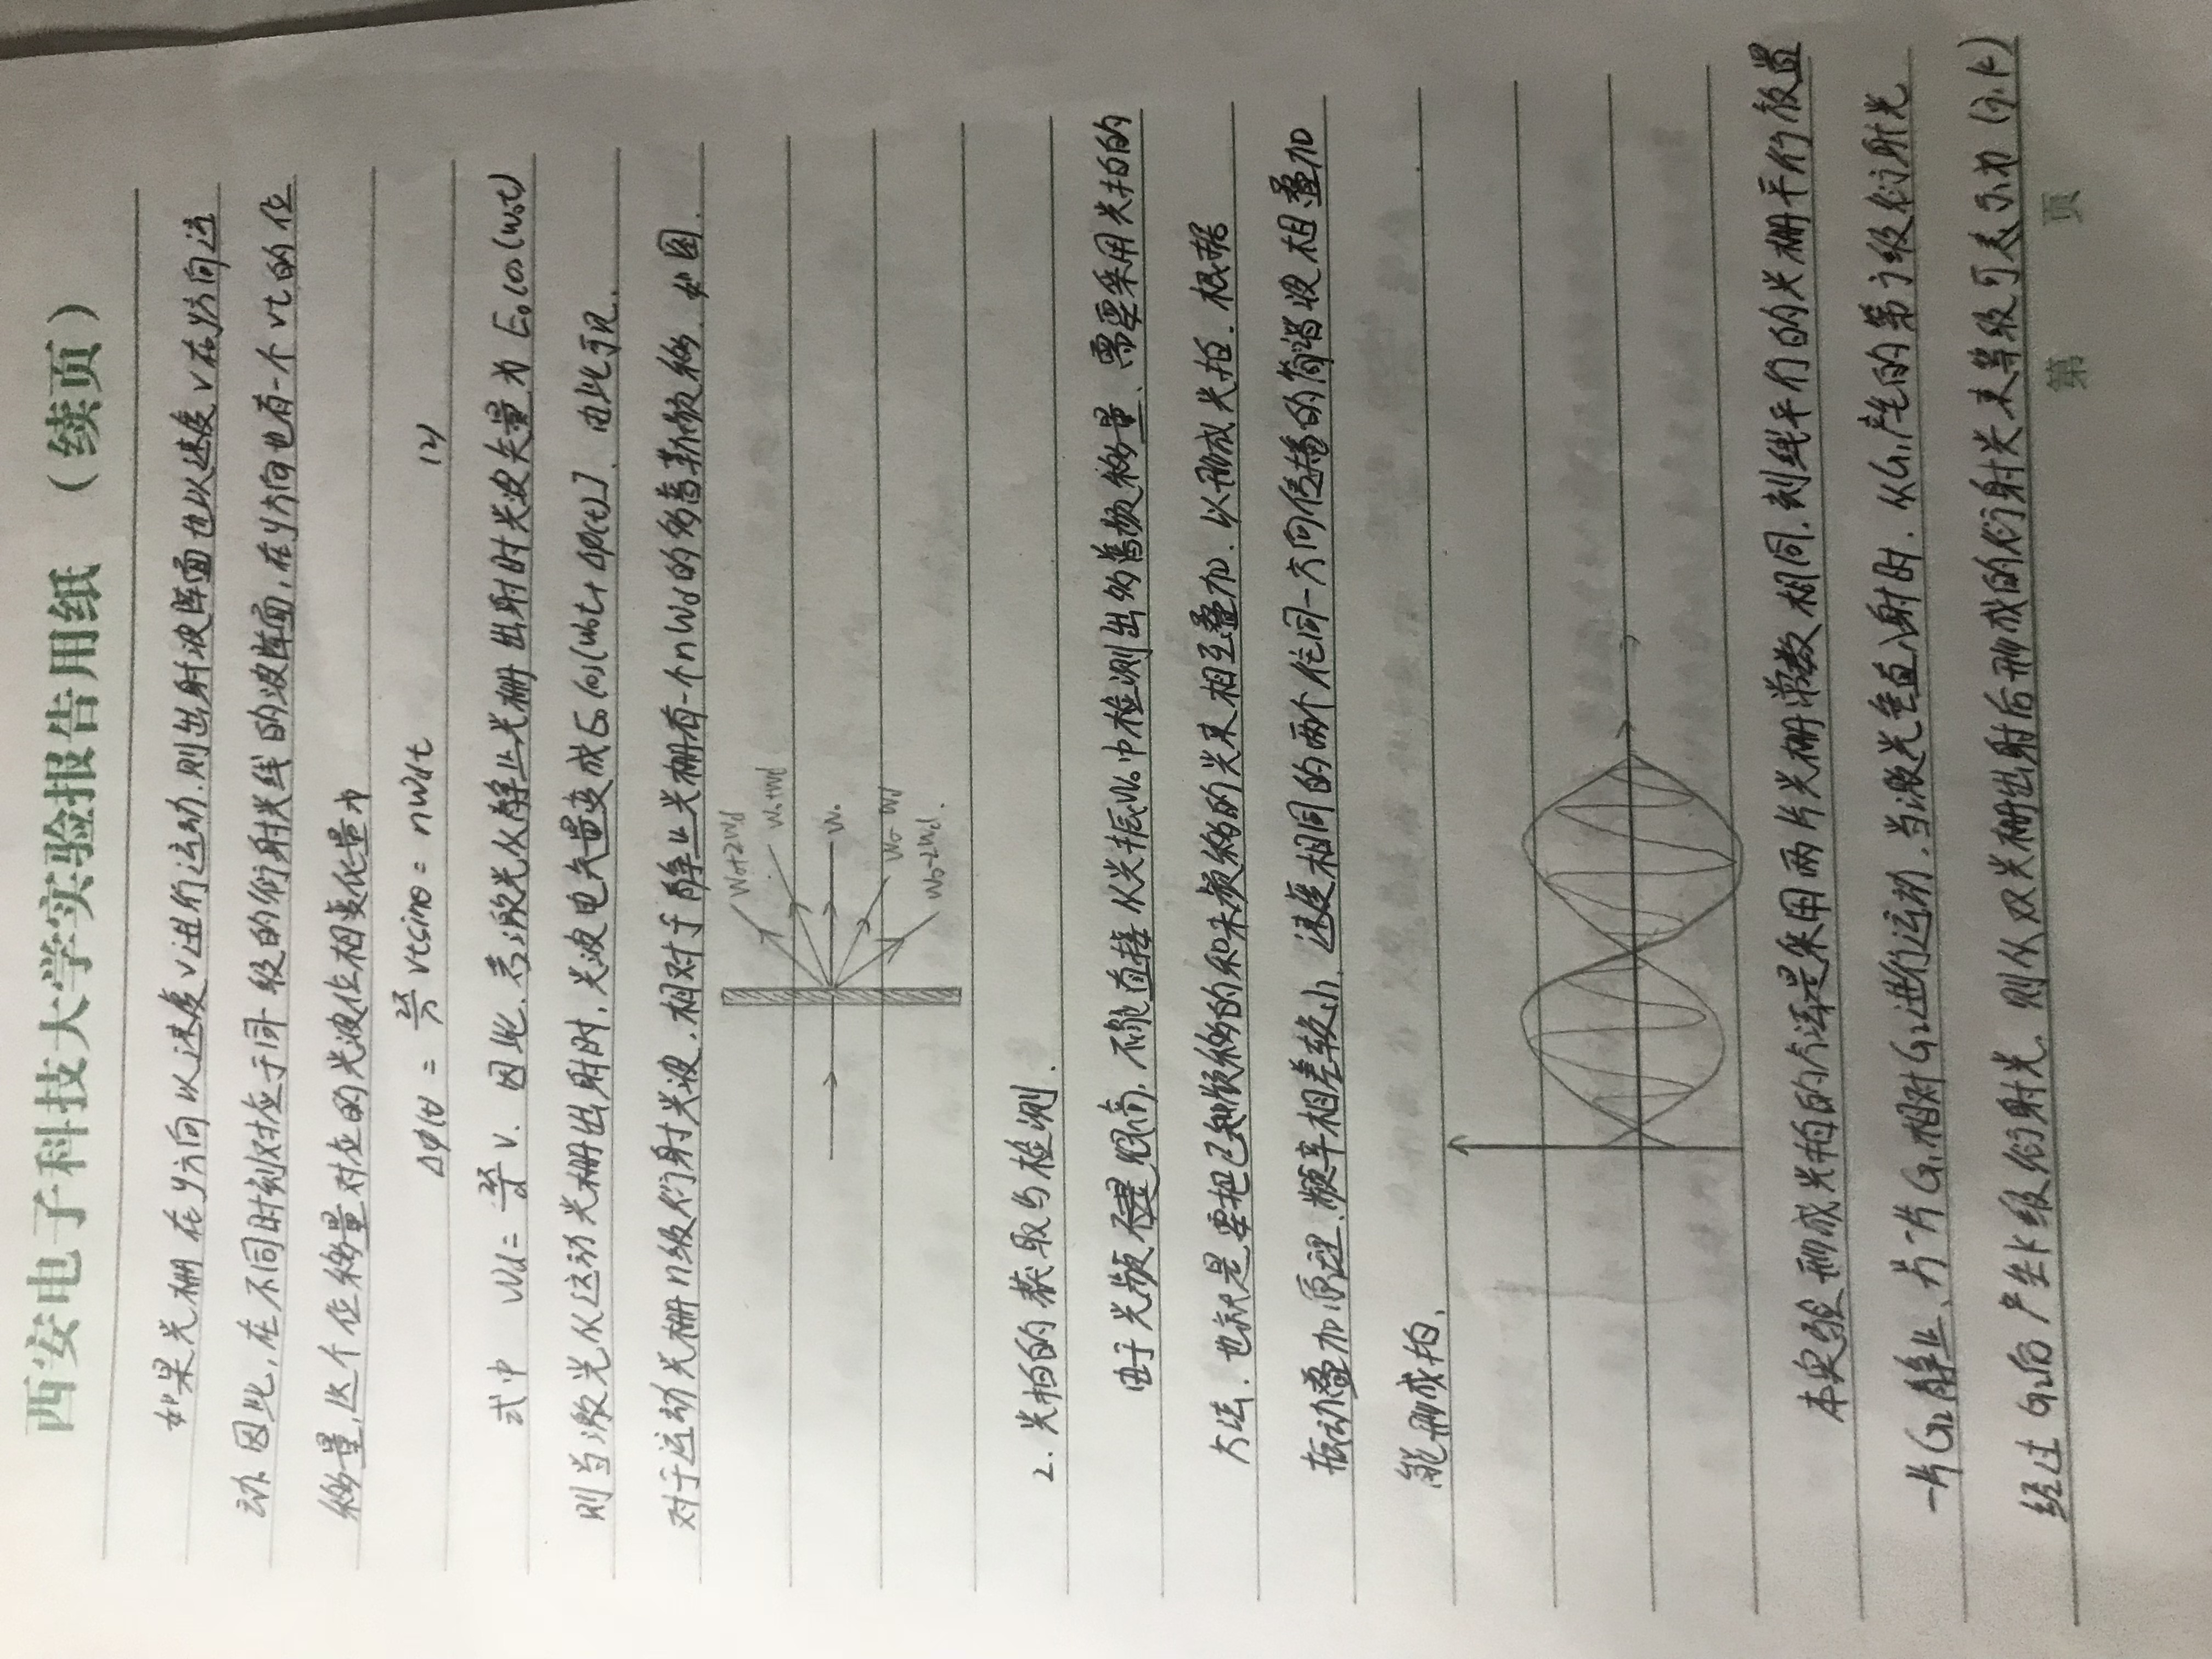 西安电子科技大学实验报告用纸 （续页）
如果光栅在y方向以速度v进行运动.则出射波阵面也以速度v在y方向运
动.因此,在不同时刻对应于同一级的衍射光线的波阵面,在y方向也有一个vt的位
移量,这个位移量对应的光波位相变化量为
Δφ(t) = 2π/λ vtsinθ = nWdt (2)
式中 Wd = 2π/d v. 因此.若激光从静止光栅出射时光波矢量为 E₀cos(W₀t)
则当激光从运动光栅出射时,光波电矢量变成E₀cos[W₀t+Δφ(t)]. 由此可见.
对于运动光栅n级衍射光波,相对于静止光栅有一个nWd的多普勒频移. 如图.
W₀+2Wd
W₀+Wd
W₀
W₀-Wd
W₀-2Wd.
2.光拍的获取与检测.
由于光频很高,不能直接从光振W₀中检测出多普频移量、需要采用光拍的
方法.也就是要把已知频移的和未频移的光束相互叠加.以形成光拍.根据
振动叠加原理,频率相差较小、速度相同的两个往同一方向传播的简谐波相叠加
能形成拍,
本实验形成光拍的方法是采用两片光栅常数相同,刻线平行的光栅平行放置
一片G₂静止、另一片G₁相对G₂进行运动.当激光垂直入射时.从G₁产生的第j级衍射光
经过G₂后产生k级衍射光,则从双光栅出射后形成的衍射光束等级可表示为(j.k)
第 页